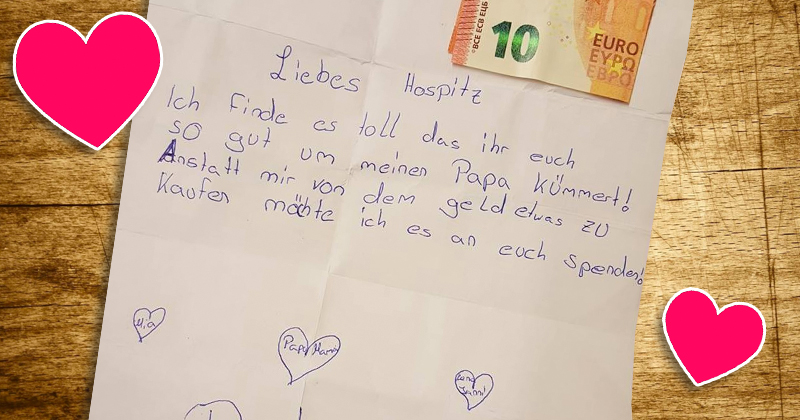 ВСЕ ЕСВ ЕЦБ
10
EURO
ΕΥΡΩ
ЕВРО
Liebes Hospitz
Ich finde es toll das ihr euch
so gut um meinen Papa kümmert!
Anstatt mir von dem geld etwas zu
Kaufen möchte ich es an euch spenden!
Mia
Papa Mama